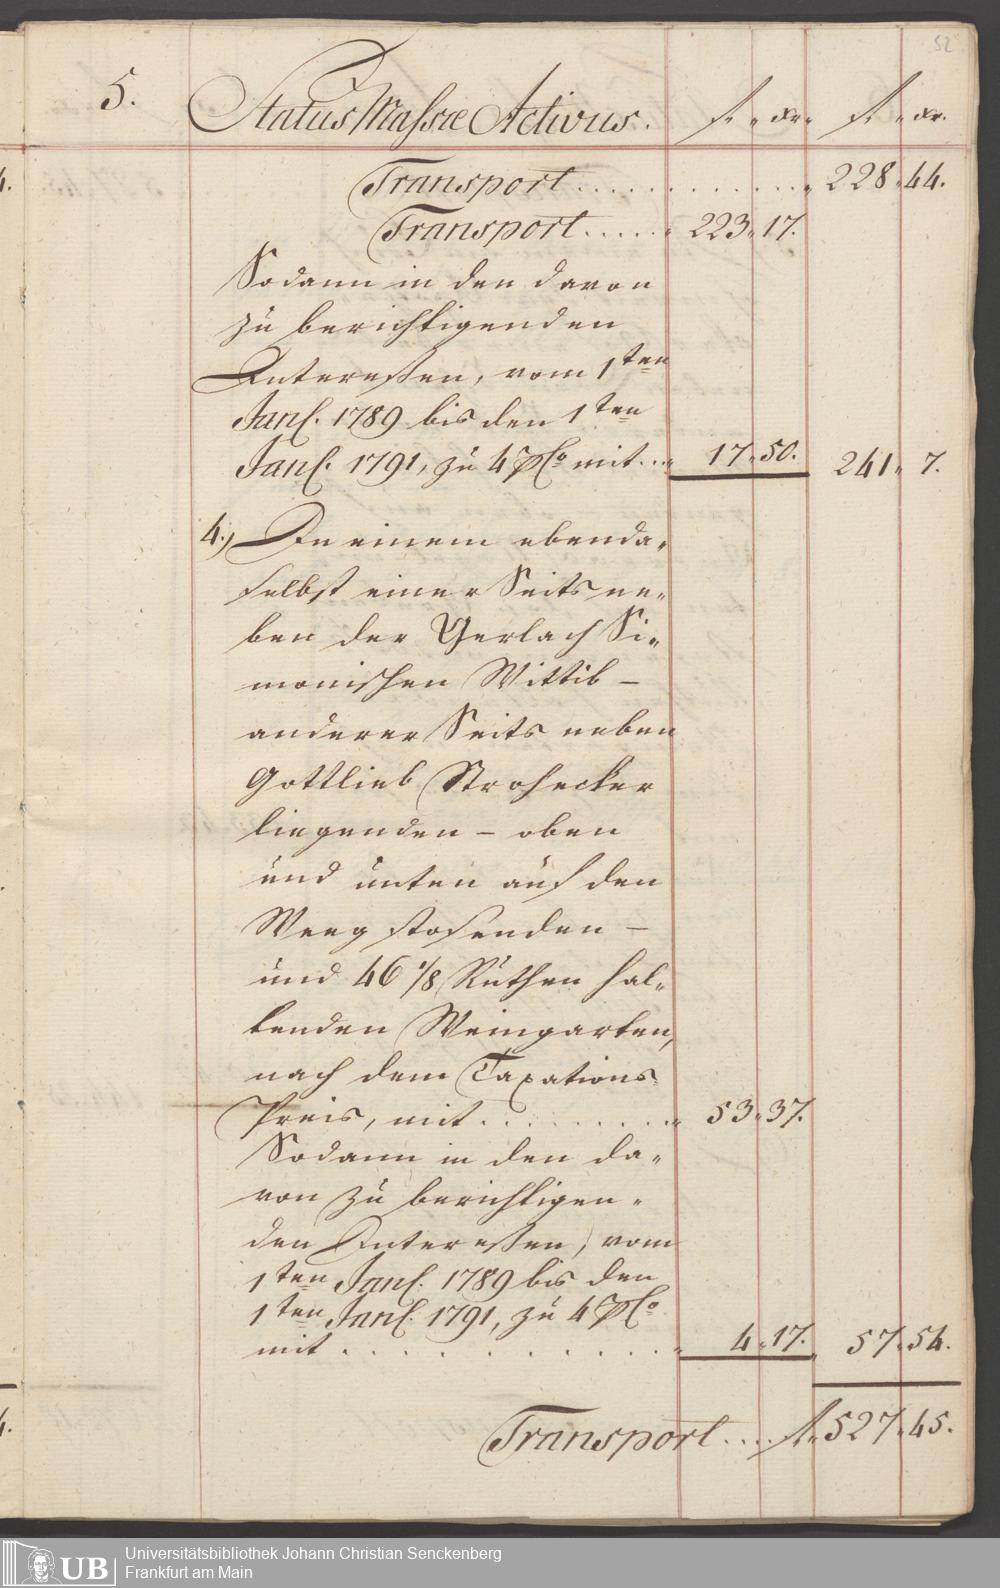 52
5. Status Massæ Activus. f. xr. f. xr.
Transport . . . . . . . . . . . . . 228. 44.
Transport . . . . . 223. 17.
Sodann in den davon
zu berichtigenden
Interessen, vom 1ten
Jan. 1789 bis den 1ten
Jan. 1791, zu 4 pCo mit . . . 17. 50. 241. 7.
4.) In einem ebenda-
selbst einer Seits ne-
ben der Gerlach Si-
monischen Wittib –
anderer Seits neben
Gottlieb Strohecker
liegenden – oben
und unten auf den
Weeg stosenden –
und 46 1/8 Ruthen hal-
tenden Weingarten,
nach dem Taxations
Preis, mit . . . . . . . . 53. 37.
Sodann in den da-
von zu berichtigen-
den Interessen, vom
1ten Jan. 1789 bis den
1ten Jan. 1791, zu 4 pCo
mit . . . . . . . . . . 4. 17. 57. 54.
Transport . . . . f. 527. 45.
UB
Universitätsbibliothek Johann Christian Senckenberg
Frankfurt am Main